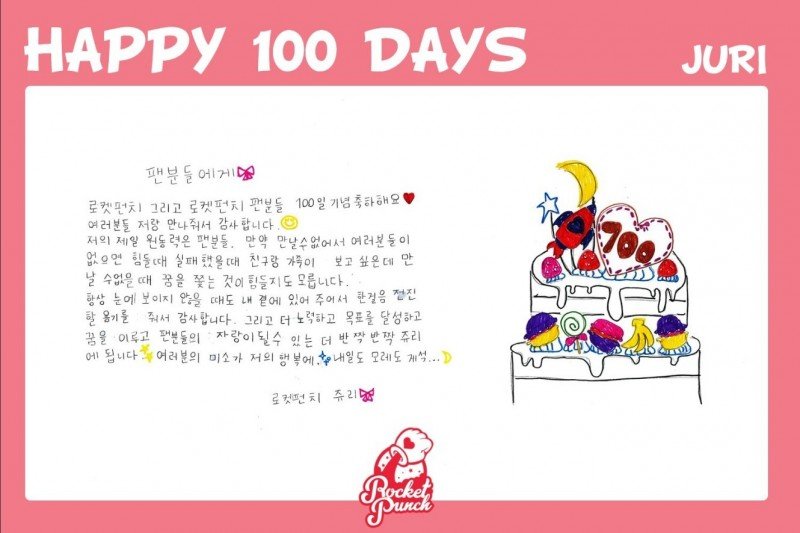 HAPPY 100 DAYS
JURI
팬분들에게
로켓펀치 그리고 로켓펀치 팬분들 100일 기념 축하해요
여러분들 저랑 만나줘서 감사합니다.
저의 제일 원동력은 팬분들. 만약 만날수없어서 여러분들이
없으면 힘들때 실패했을때 친구랑 가족이 보고싶은데 만
날 수없을때 꿈을 쫓는 것이 힘들지도 모릅니다.
항상 눈에 보이지 않을 때도 내 곁에 있어 주어서 한걸음 전진
할 용기를 줘서 감사합니다. 그리고 더 노력하고 목표를 달성하고
꿈을 이루고 팬분들의 자랑이 될수 있는 더 반짝 반짝 쥬리
에 됩니다 여러분의 미소가 저의 행복에. 내일도 모레도 계석...
로켓펀치 쥬리
100
Rocket
Punch